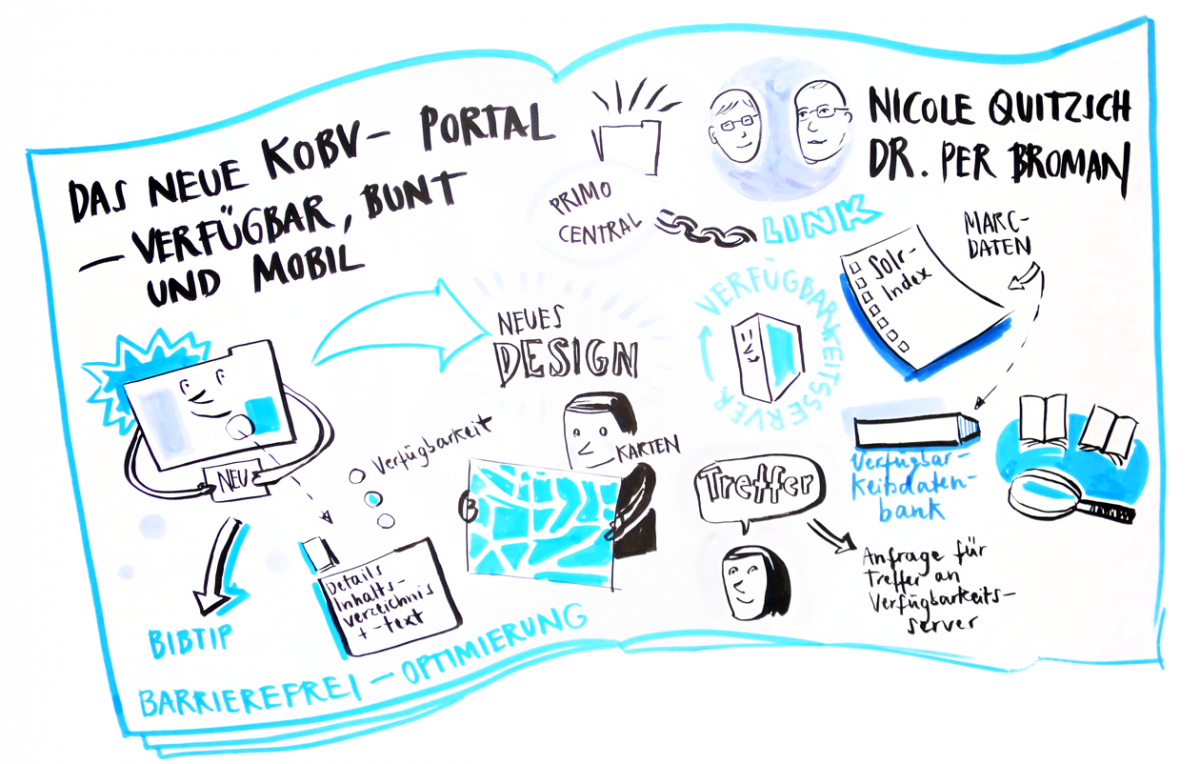 DAS NEUE KOBV- PORTAL
- VERFÜGBAR, BUNT
UND MOBIL
NICOLE QUITZSCH
DR. PER BROMAN
PRIMO
CENTRAL
LINK
MARC-
DATEN
Solr-
Index
VERFÜGBARKEITSSERVER
NEUES
DESIGN
NEU
Verfügbarkeit
KARTEN
Treffer
Verfügbar-
keitsdaten-
bank
Details
Inhalts-
verzeichnis
+ -text
Anfrage für
Treffer an
Verfügbarkeits-
server
BIBTIP
BARRIEREFREI - OPTIMIERUNG